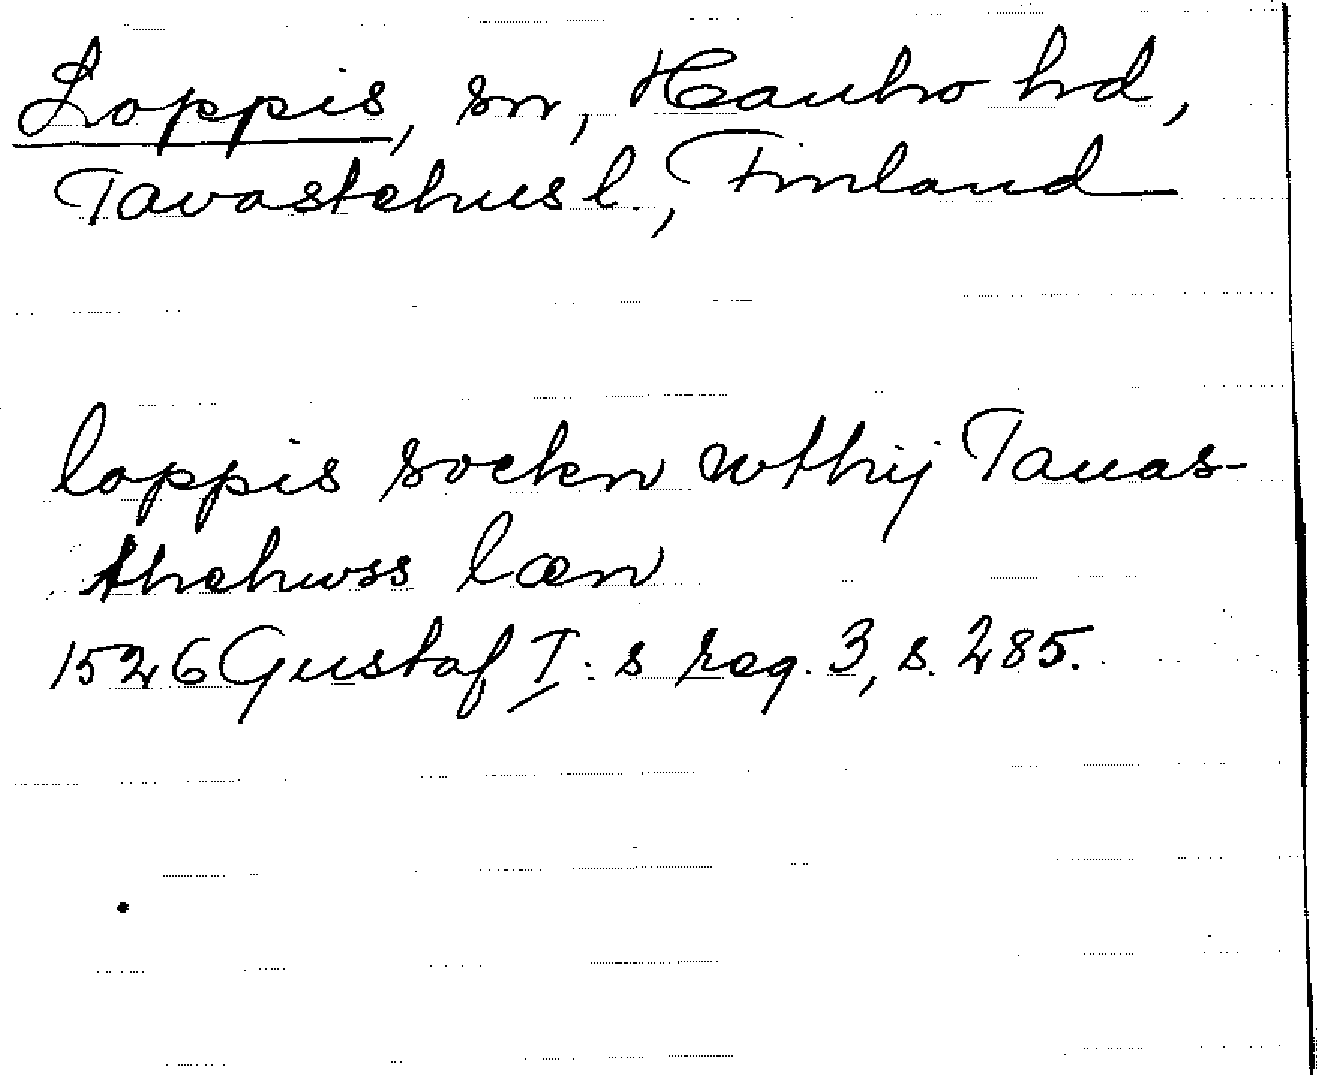 Loppis, sn, Hauho hd,
Tavastehus l., Finland
loppis sockn wthij Tauas-
thehwss læn
1526 Gustaf I:s reg. 3, s. 285.